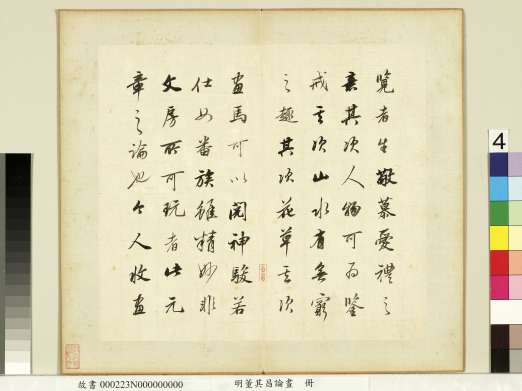 覽者生敬慕愛禮之
意其次人物可為鑒
戒其次山水有無窮
之趣其次花草其次
畫馬可以閱神駿若
仕女番族雖精妙非
文房所可玩者此元
章之論也今人收畫
4
故書 000223N000000000
明董其昌論畫 冊